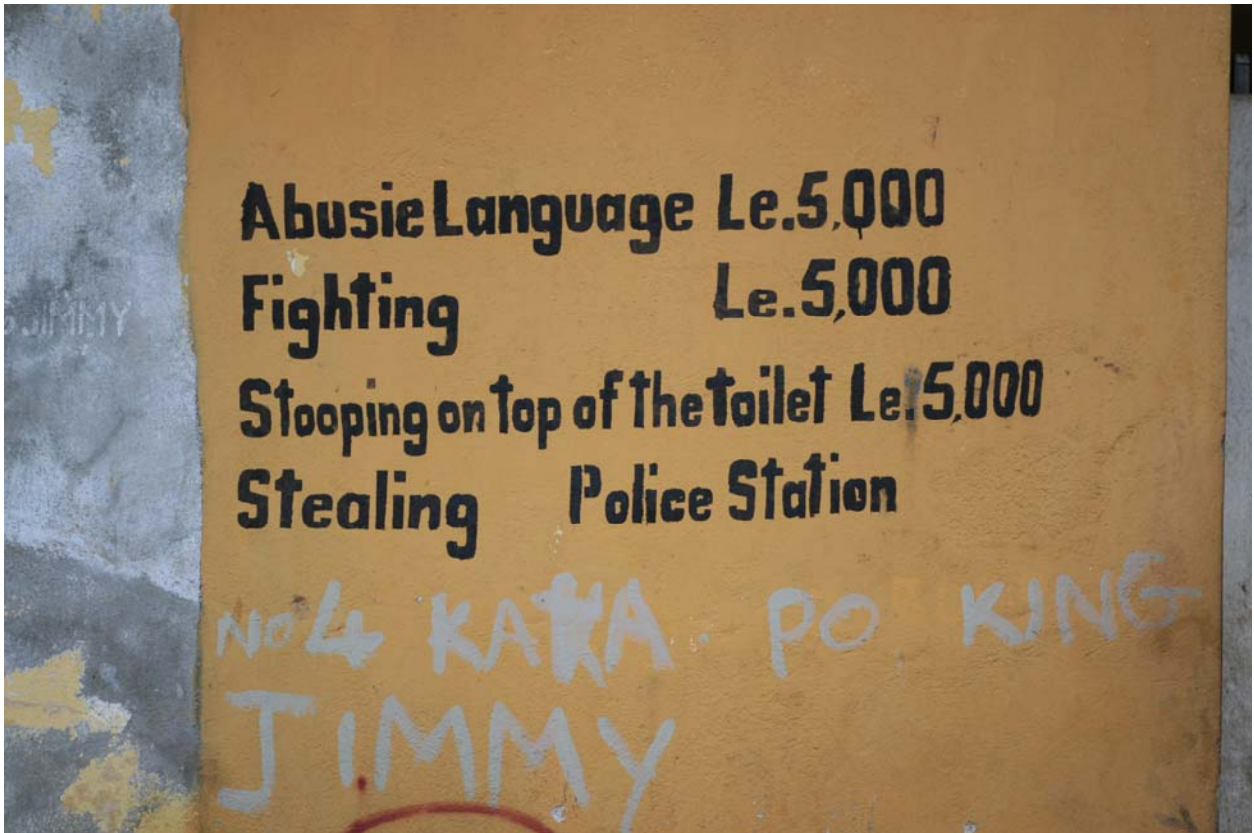 Abusie Language Le.5,000
Fighting Le.5,000
Stooping on top of the toilet Le.5,000
Stealing Police Station
No 4 KAKA. PO KING
JIMMY
JIMMY